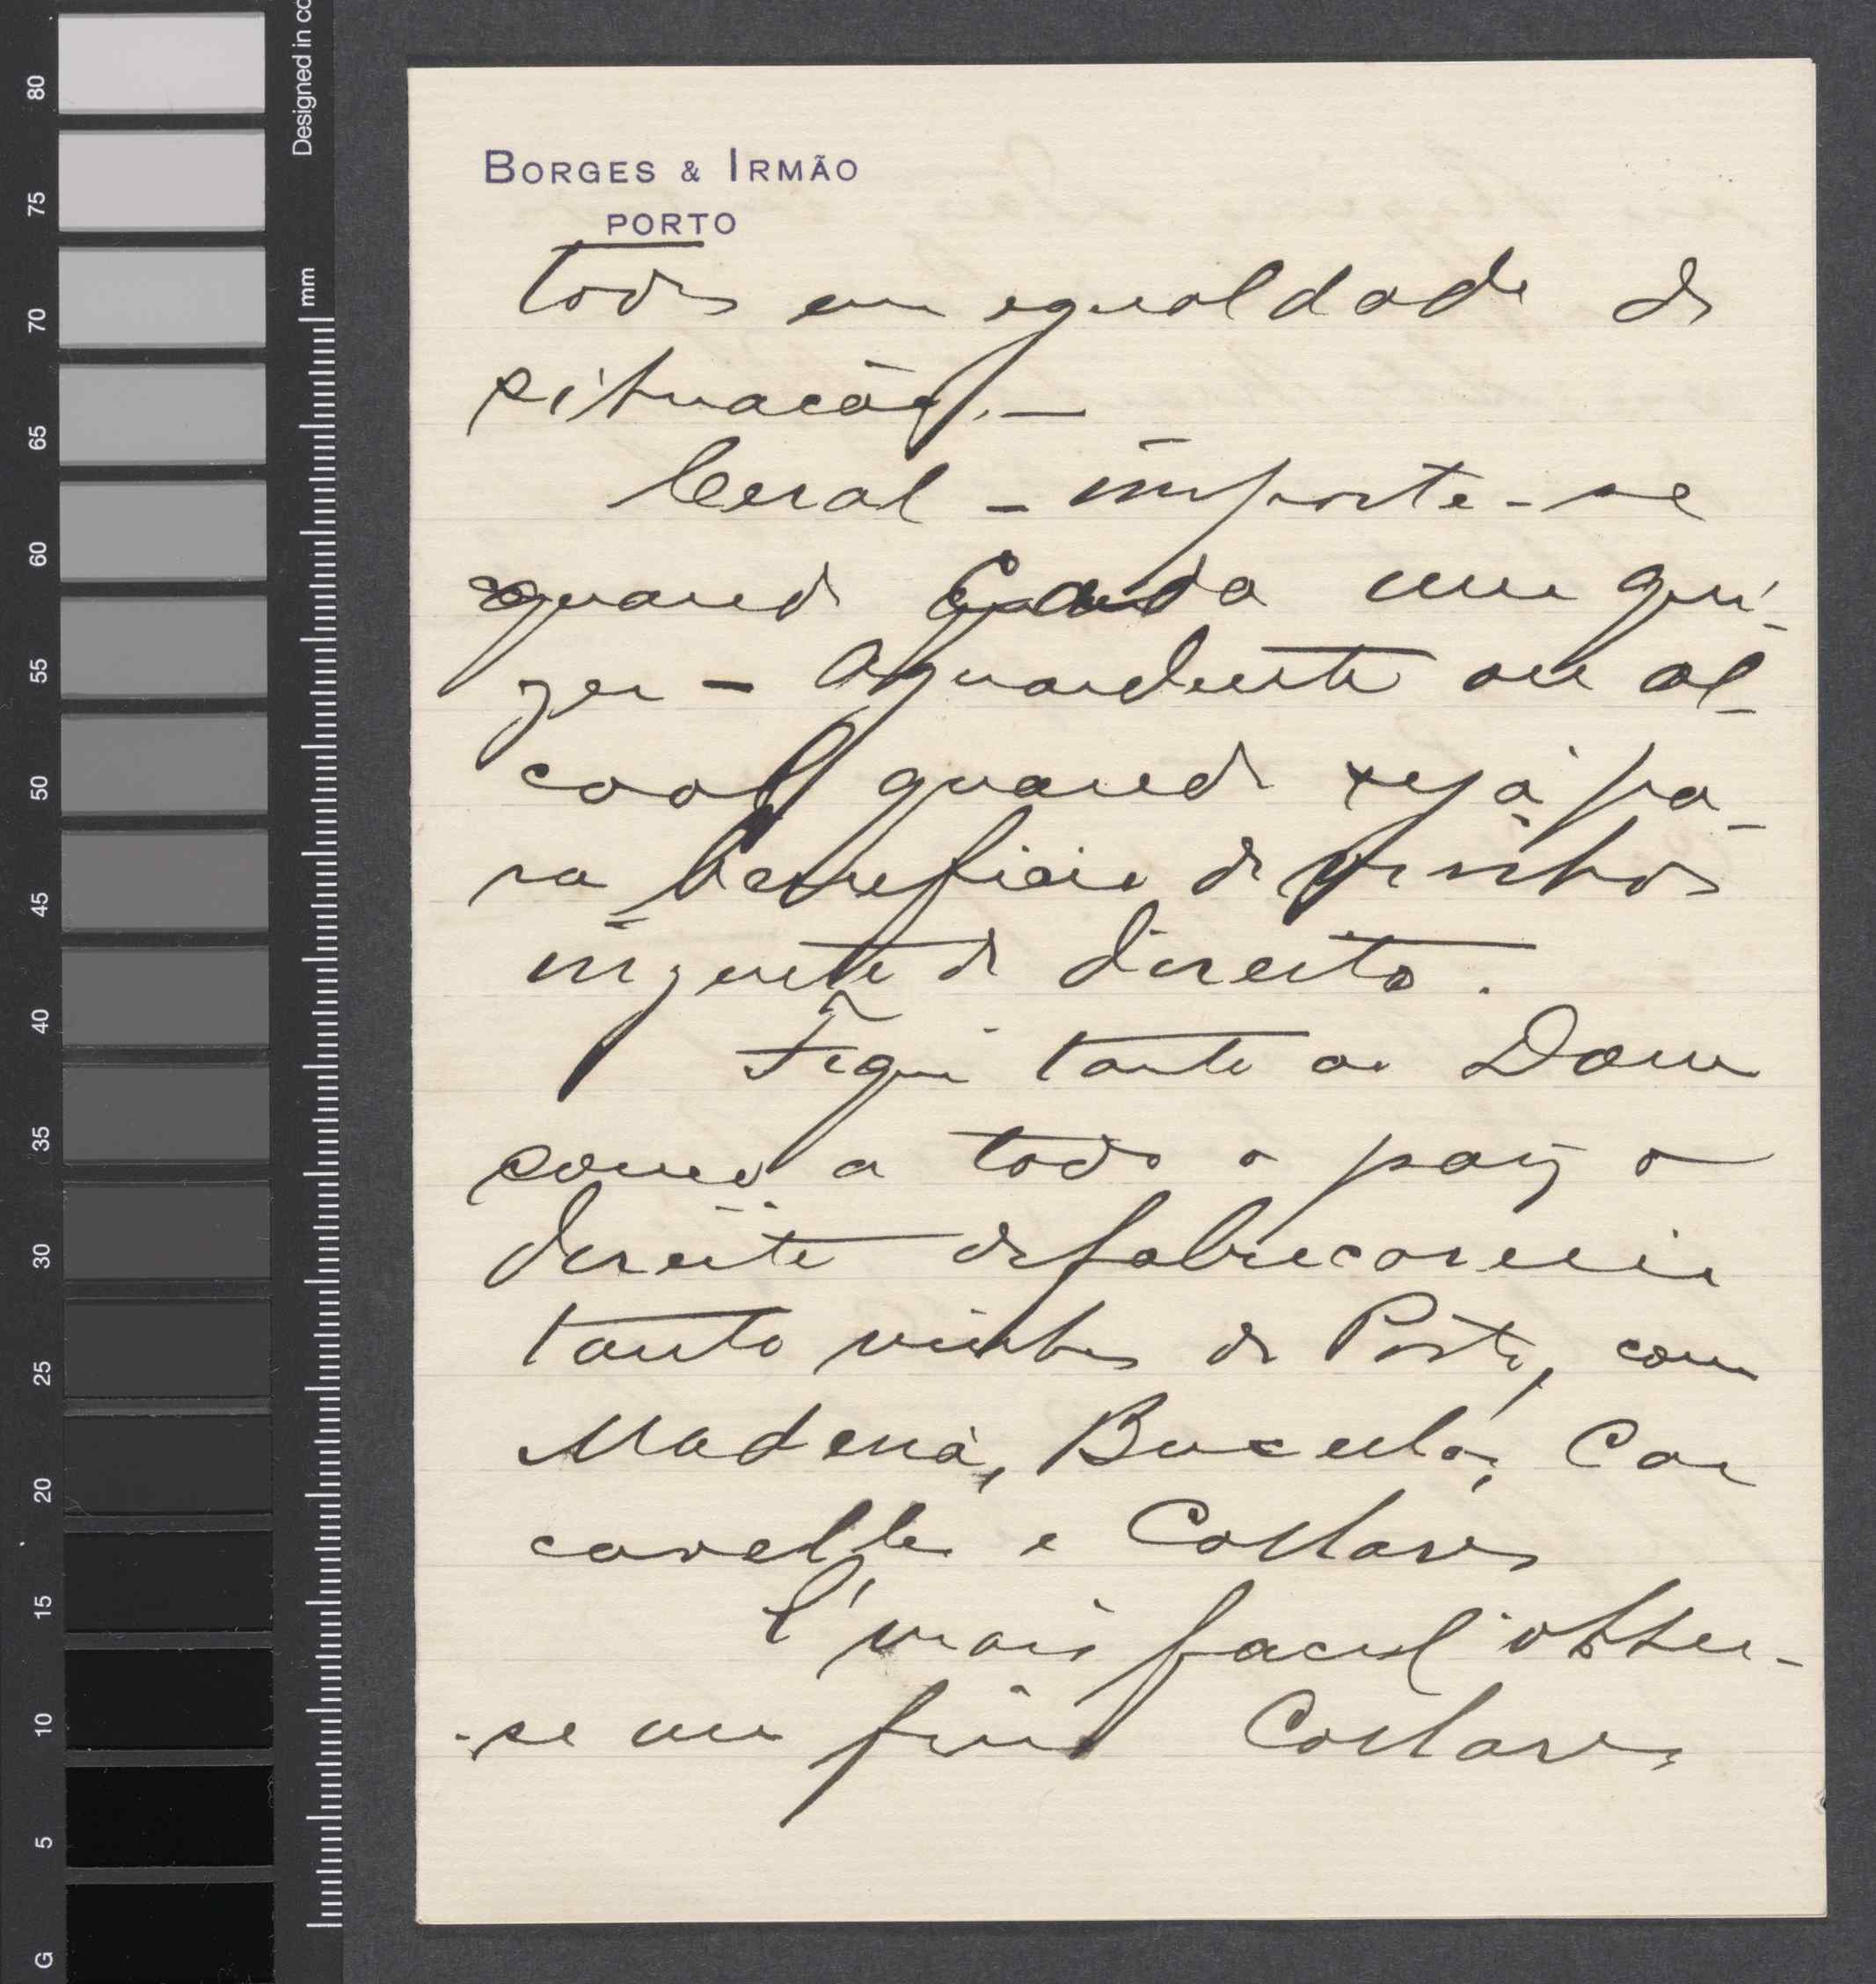 BORGES & IRMÃO
PORTO
todos em egualdade de
situação.—
Cereal – importe-se
quando Cada um qui-
zer – Aguardente ou al-
cool quando seja pa-
ra beneficio de vinhos
izente de direito.
Fique tanto ao Douro
como a todo o paiz o
direito de fabricarem
tanto vinhos do Porto, como
Madeira, Bucellas, Car
cavellos e Collares
É mais facil obter-
-se um fino Collares
Designed in
mm
80
75
70
65
60
55
50
45
40
35
30
25
20
15
10
5
G